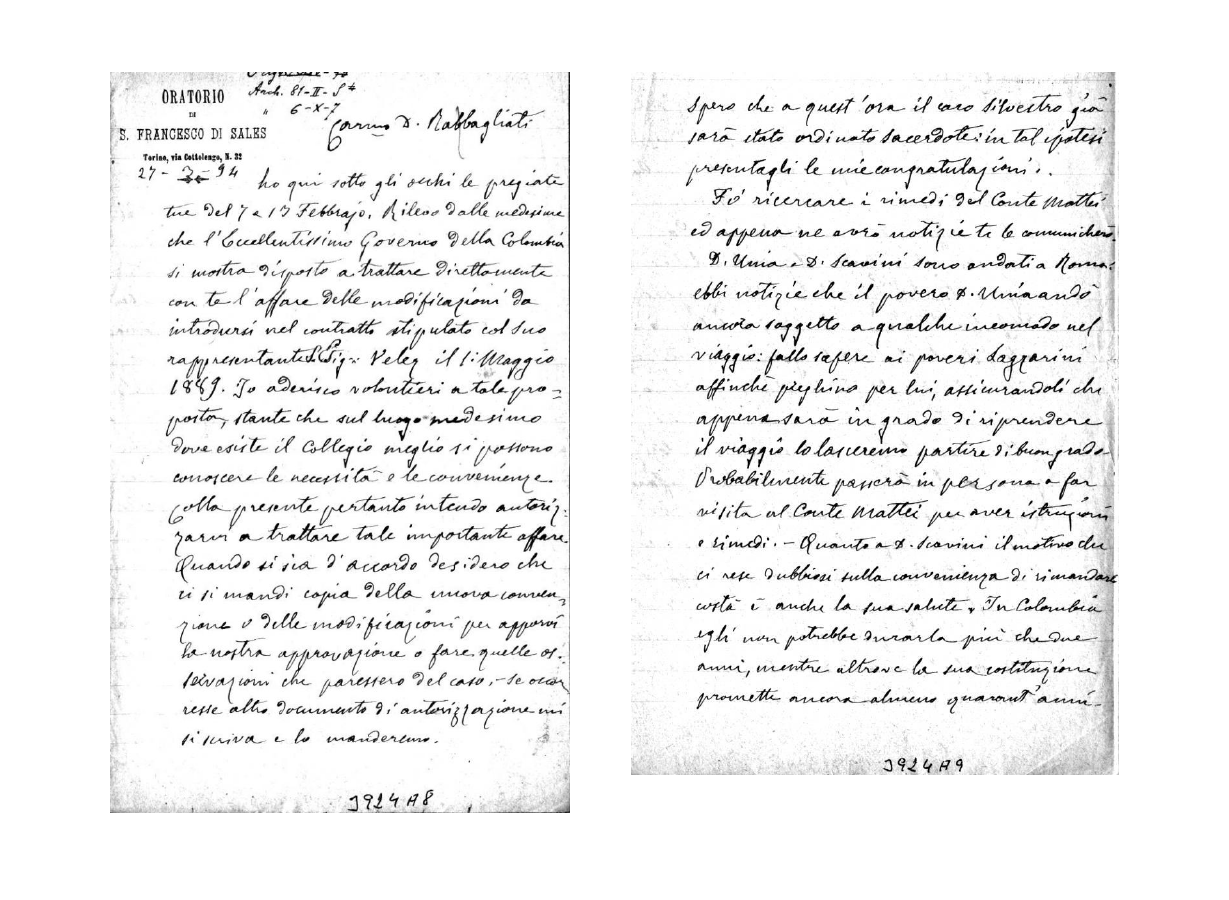 Arch. 81-II-S
ORATORIO
" 6-X-7
DI
S. FRANCESCO DI SALES
Carmo D. Rabbagliati
Torino, via Cottolengo, N. 32
27-3-94
ho qui sotto gli occhi le pregiate
tue del 7 e 13 Febbrajo. Rilevo dalle medesime
che l'Eccellentissimo Governo della Colombia
si mostra disposto a trattare direttamente
con te l'affare delle modificazioni da
introdursi nel contratto stipulato col suo
rappresentante Sig: Velez il 1: Maggio
1889. Io aderisco volontieri a tale pro=
posta, stante che sul luogo medesimo
dove esiste il Collegio meglio si possono
conoscere le necessità e le convenienze.
Colla presente pertanto intendo autoriz-
zarvi a trattare tale importante affare.
Quando si sia d'accordo desidero che
ci si mandi copia della nuova conven-
zione o delle modificazioni per apporvi
la nostra approvazione o fare quelle os-
servazioni che paressero del caso, - se occor
resse altro documento di autorizzazione mi
si scriva e lo manderemo.
J924A8
spero che a quest'ora il caro Silvestro già
sarà stato ordinato sacerdote: in tal ipotesi
presentagli le mie congratulazioni.
Fo' ricercare i rimedi del Conte Mattei
ed appena ne avrò notizie te le comunicherò.
D. Unia e D. Scavini sono andati a Roma:
ebbi notizie che il povero D. Unia andò
ancora soggetto a qualche incomodo nel
viaggio: fallo sapere ai poveri Lazzarini
affinchè preghino per lui, assicurandoli che
appena sarà in grado di riprendere
il viaggio lo lasceremo partire di buon grado.
Probabilmente passerà in persona a far
visita al Conte Mattei per aver istruzioni
e rimedi. - Quanto a D. Scavini il motivo che
ci rese dubbiosi sulla convenienza di rimandare
costà è anche la sua salute. In Colombia
egli non potrebbe durarla più che due
anni, mentre altrove la sua costituzione
promette ancora almeno quarant'anni-
J924A9